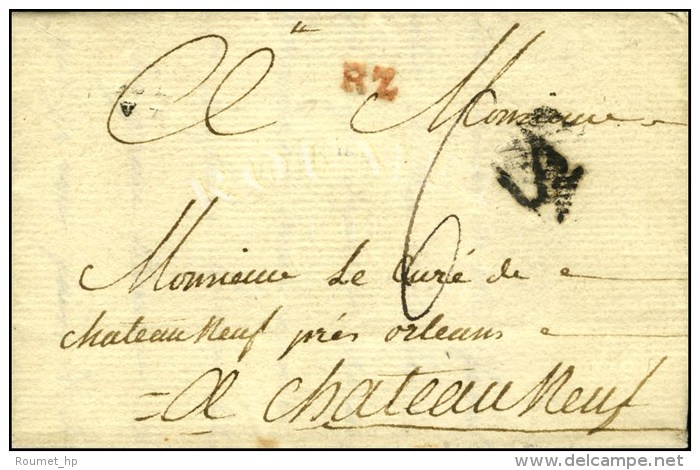 A Monsieur
RZ
6
Monsieur Le Curé de
chateauNeuf prés orleans
= A chateauNeuf
Roumet_hp
delcampe.net